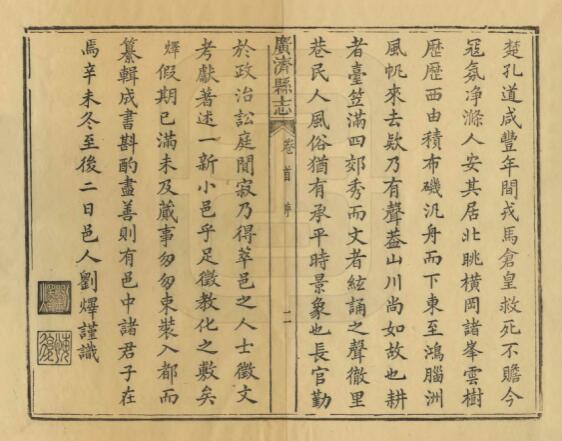 楚孔道咸豐年間戎馬倉皇救死不贍今
寇氛淨滌人安其居北眺橫岡諸峯雲樹
歷歷西由積布磯汎舟而下東至鴻腦洲
風帆來去欵乃有聲葢山川尚如故也耕
者臺笠滿四郊秀而文者絃誦之聲徹里
巷民人風俗猶有承平時景象也長官勤
廣濟縣志
卷首
序
二
於政治訟庭閒寂乃得萃邑之人士徵文
考獻著述一新小邑乎足徵教化之敷矣
燡假期已滿未及蕆事匆匆束裝入都而
纂輯成書斟酌盡善則有邑中諸君子在
焉辛未冬至後二日邑人劉燡謹識